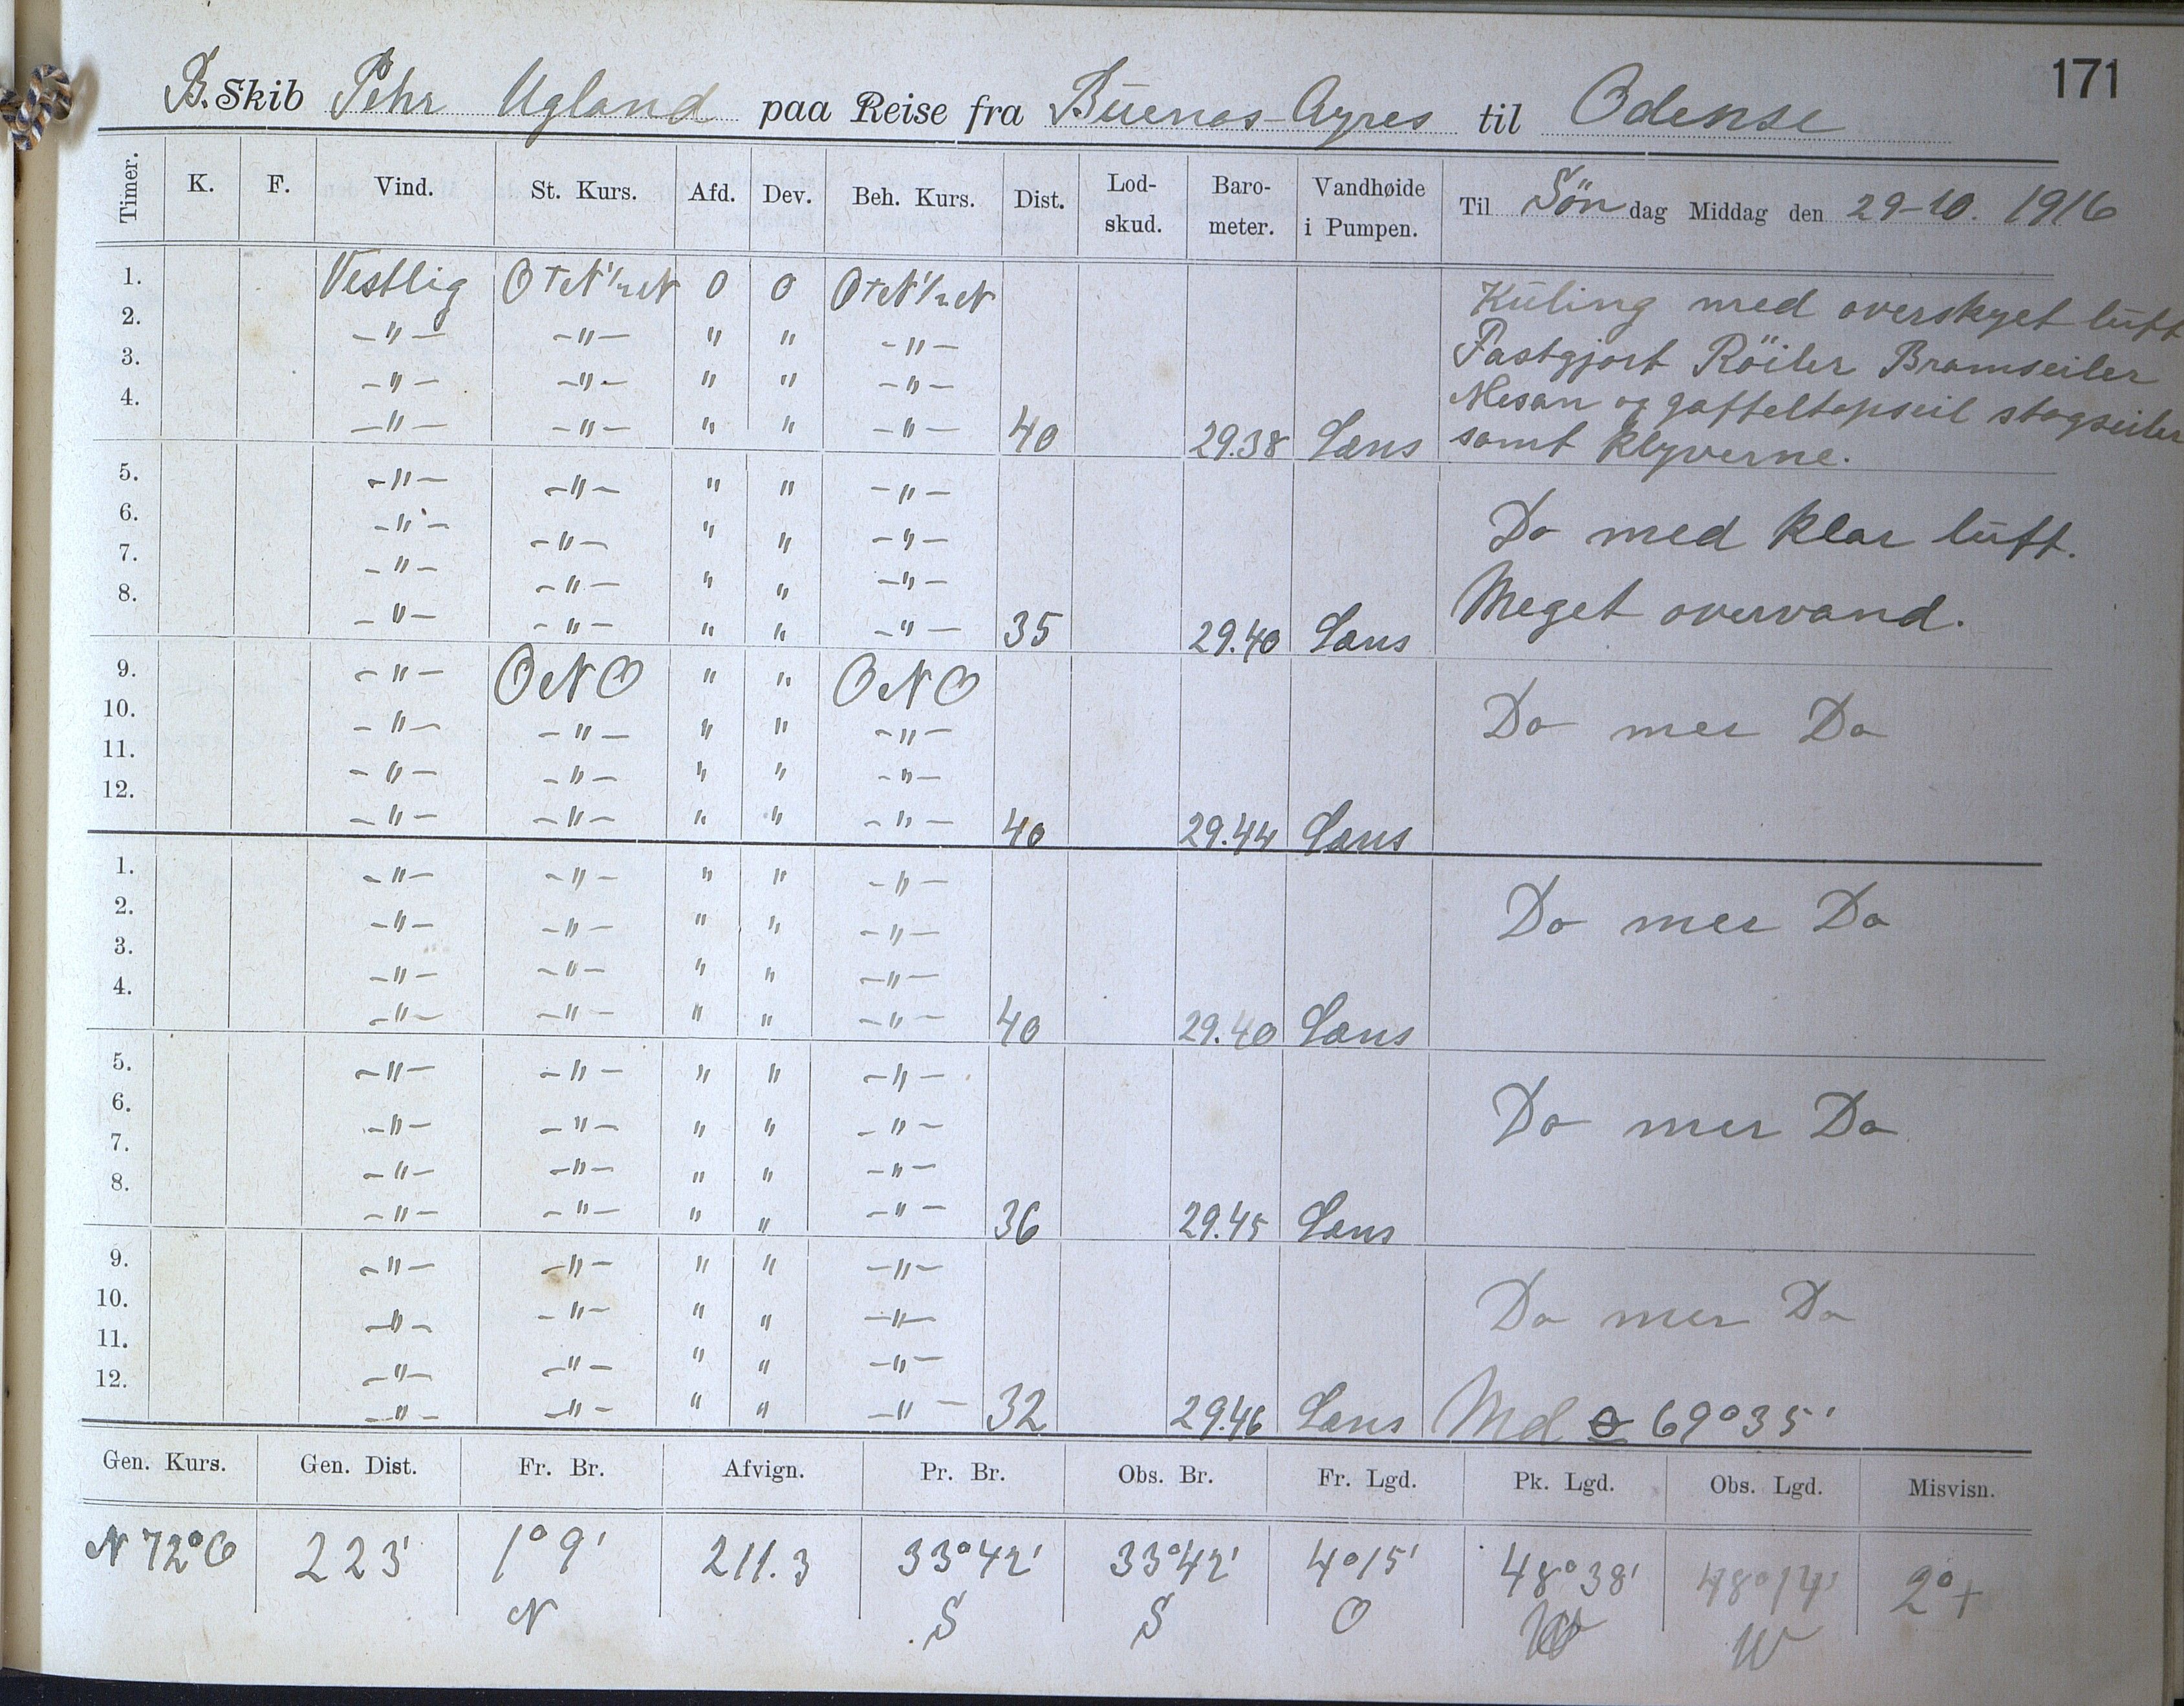 171
B. Skib Pehr Ugland paa Reise fra Buenos-Ayres til Odense
Timer. K. F. Vind. St. Kurs. Afd. Dev. Beh. Kurs. Dist. Lod-skud. Baro-meter. Vandhøide i Pumpen. Til Søndag Middag den 29-10. 1916
1. Vestlig OtN½N 0 0 OtN½N Küling med overskyet lüft
2. -"- -"- " " -"- Fastgjort Röiler Bramseiler
3. -"- -"- " " -"- Mesan og gaffeltopseil stagseiler
4. -"- -"- " " -"- 40 29.38 Læns samt klyverne.
5. -"- -"- " " -"-
6. -"- -"- " " -"- Do med klar lüft.
7. -"- -"- " " -"-
8. -"- -"- " " -"- 35 29.40 Læns Meget overvand.
9. -"- ONO " " ONO
10. -"- -"- " " -"- Do mer Do
11. -"- -"- " " -"-
12. -"- -"- " " -"- 40 29.44 Læns
1. -"- -"- " " -"-
2. -"- -"- " " -"- Do mer Do
3. -"- -"- " " -"-
4. -"- -"- " " -"- 40 29.40 Læns
5. -"- -"- " " -"-
6. -"- -"- " " -"- Do mer Do
7. -"- -"- " " -"-
8. -"- -"- " " -"- 36 29.45 Læns
9. -"- -"- " " -"-
10. -"- -"- " " -"- Do mer Do
11. -"- -"- " " -"-
12. -"- -"- " " -"- 32 29.46 Læns Md 69°35'
Gen. Kurs. Gen. Dist. Fr. Br. Afvign. Pr. Br. Obs. Br. Fr. Lgd. Pk. Lgd. Obs. Lgd. Misvisn.
N 72° O 223' 1°9' 211.3 33°42' 33°42' 4°15' 48°38' 48°14' 2°+
N S S O W W